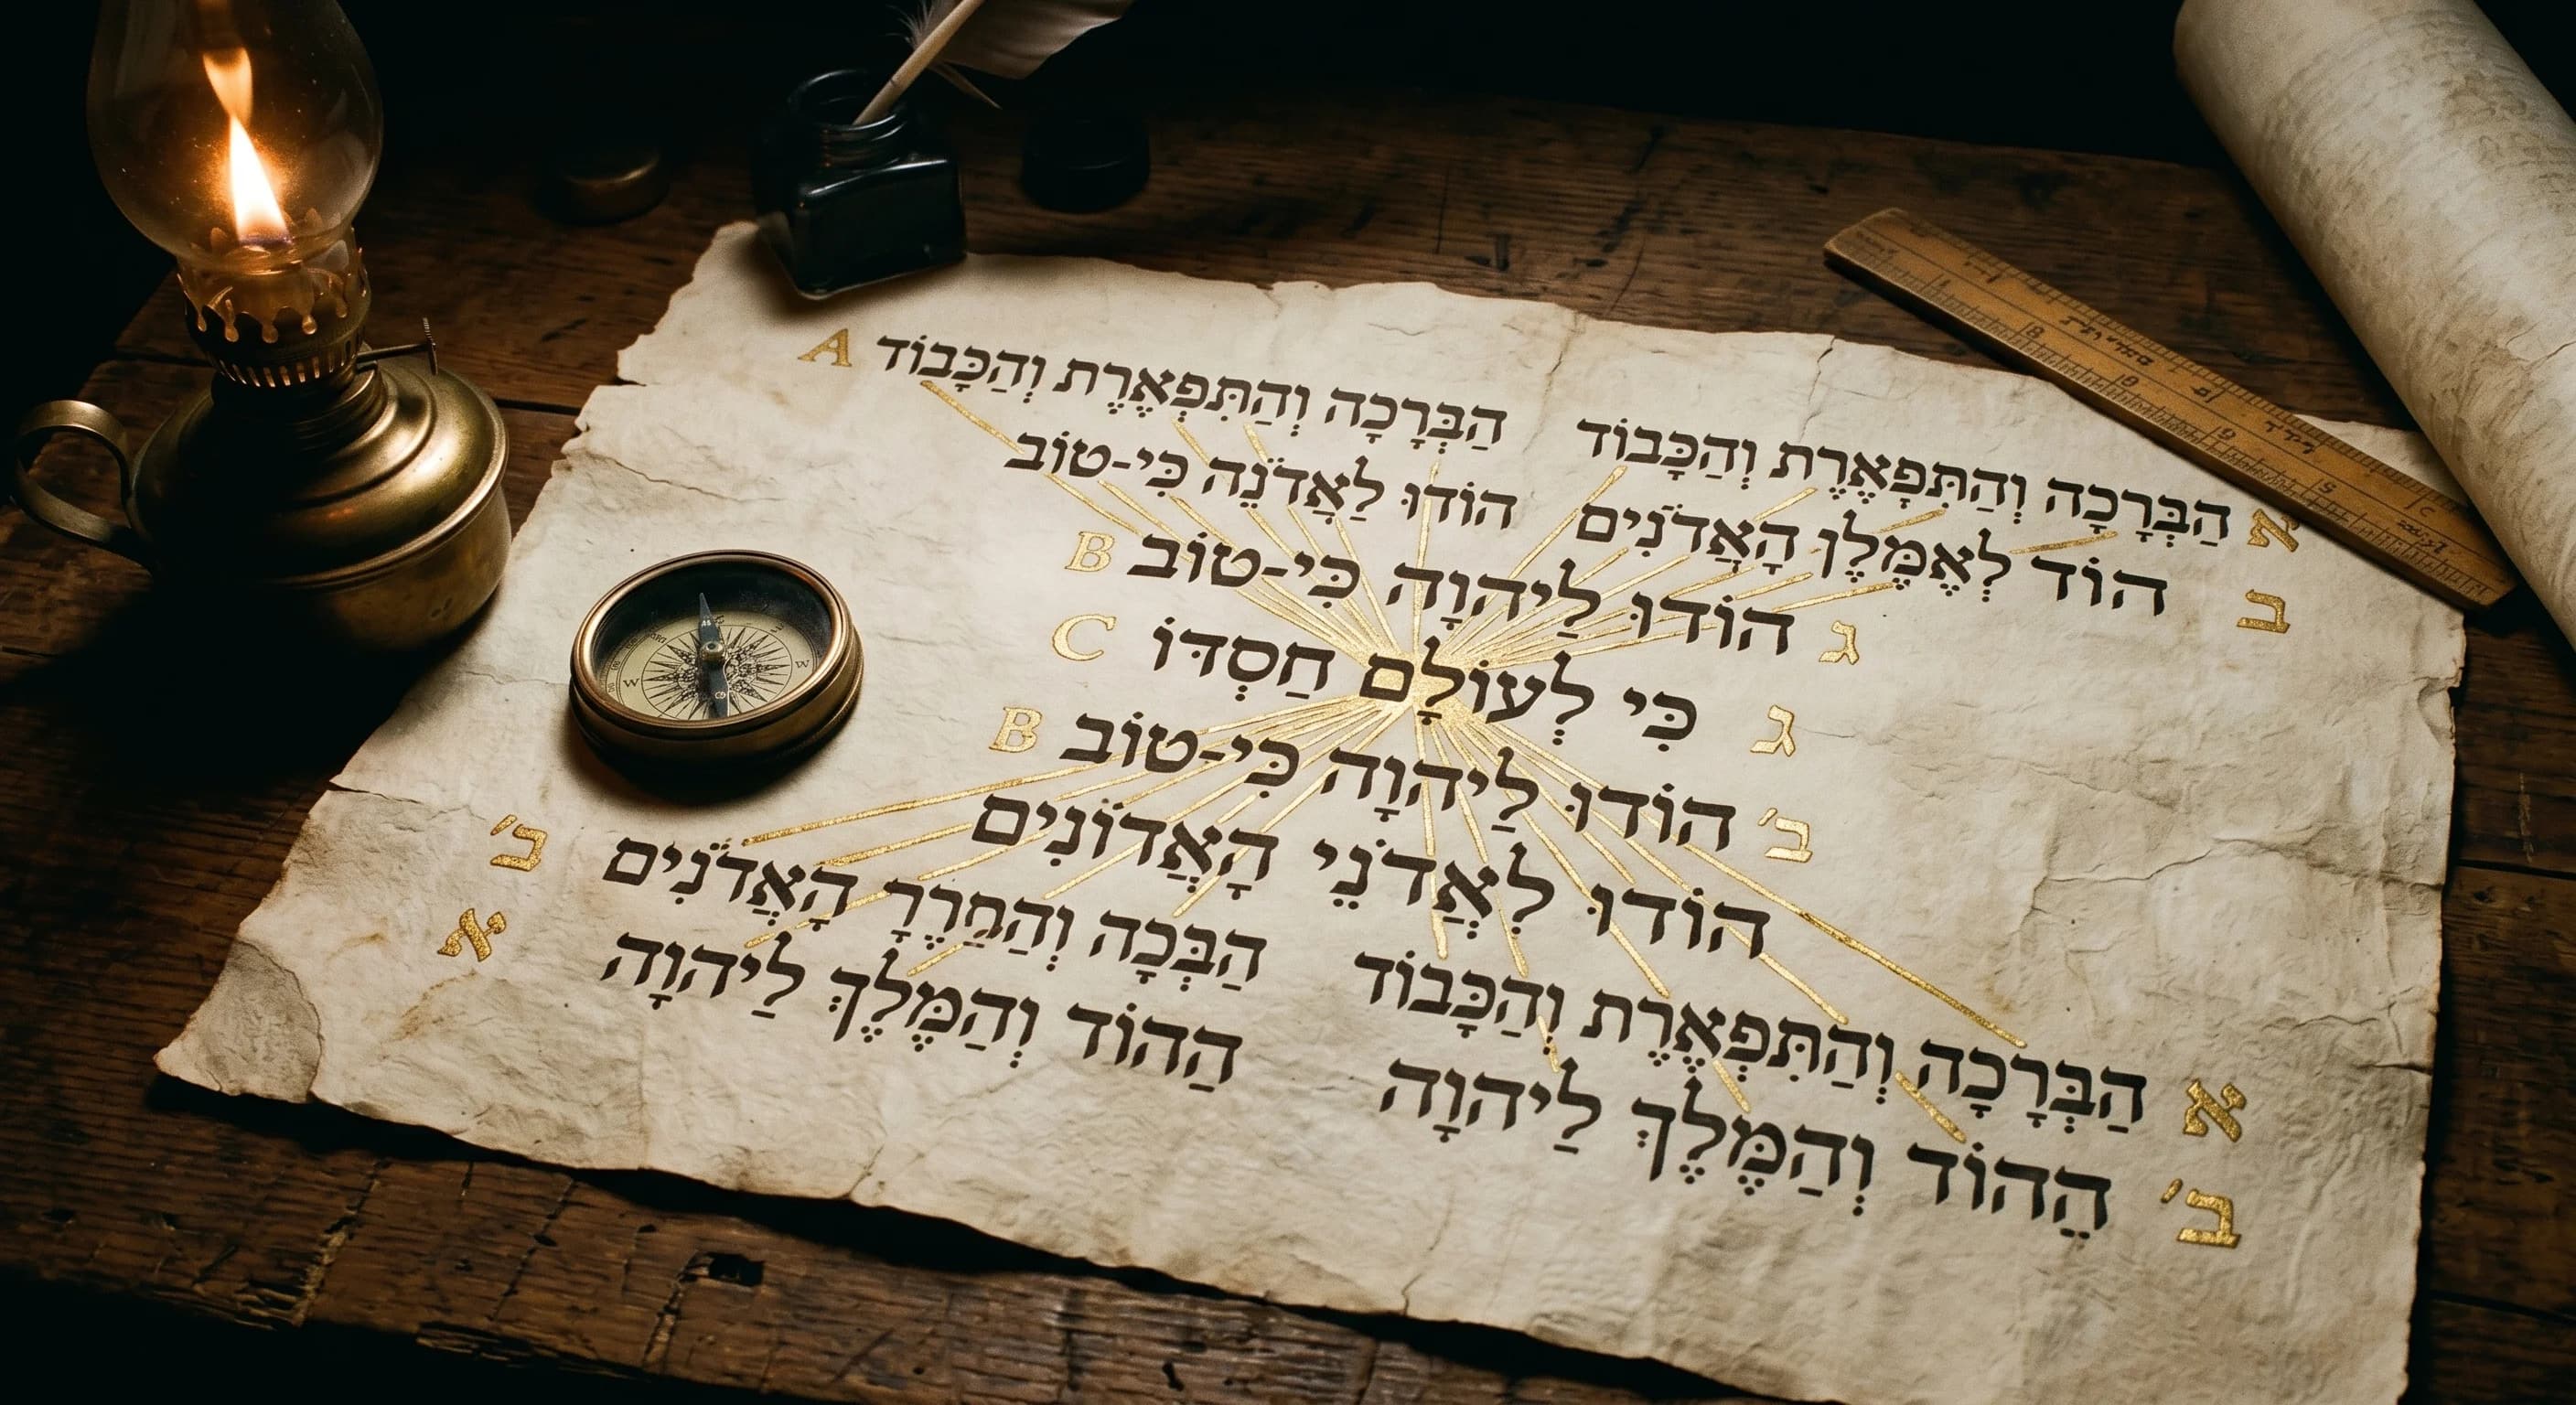 A הַבְּרָכָה וְהַתִּפְאֶרֶת וְהַכָּבוֹד
הַבְּרָכָה וְהַתִּפְאֶרֶת וְהַכָּבוֹד א
הוֹדוּ לַאֲדֹנֶה כִּי-טוֹב
הוֹד לְאֶמֶּלֶן הָאֲדֹנִים ב
B הוֹדוּ לַיהוָה כִּי-טוֹב ג
C כִּי לְעוֹלָם חַסְדּוֹ ג
B הוֹדוּ לַיהוָה כִּי-טוֹב ב'
הוֹדוּ לְאֲדֹנֵי הָאֲדוֹנִים
הַבְּכָה וְהַחֲרֶרָ הָאֲדֹנִים ב'
הַבְּרָכָה וְהַתִּפְאֶרֶת וְהַכָּבוֹד א
הַהוֹד וְהַמֶּלֶךְ לַיהוָה א
הַהוֹד וְהַמֶּלֶךְ לַיהוָה ב'